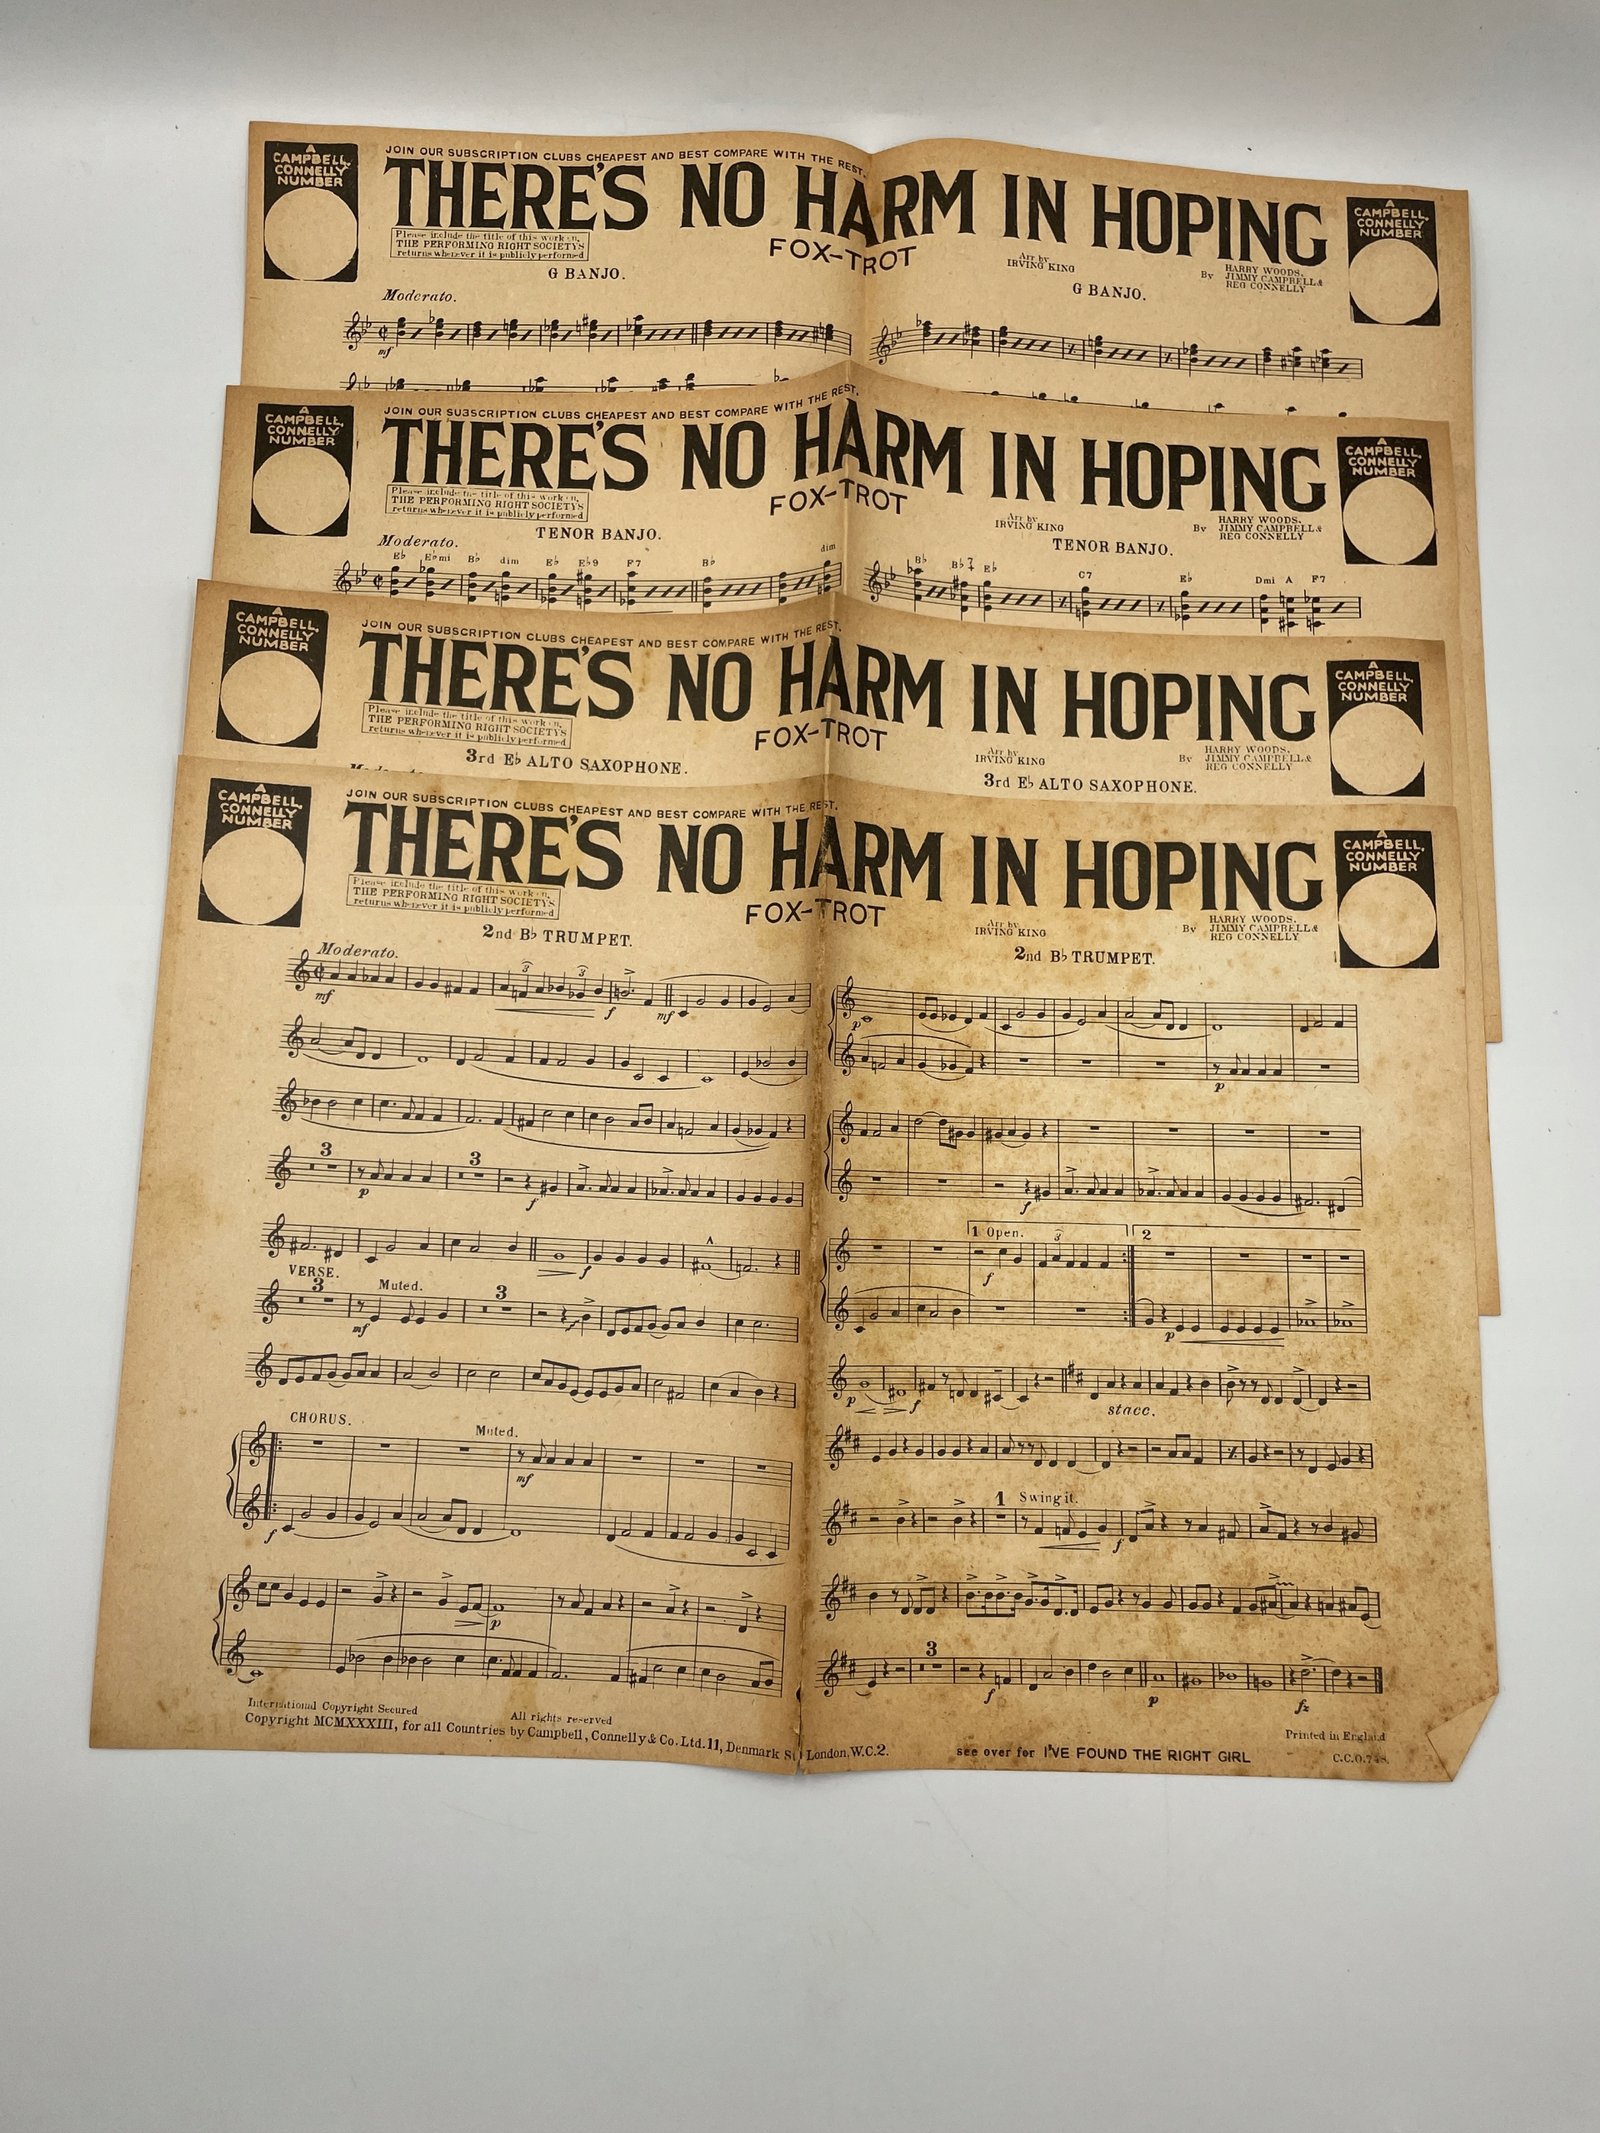 A
CAMPBELL,
CONNELLY
NUMBER
JOIN OUR SUBSCRIPTION CLUBS CHEAPEST AND BEST COMPARE WITH THE REST.
THERE'S NO HARM IN HOPING
FOX-TROT
Please include the title of this work on,
THE PERFORMING RIGHT SOCIETY'S
returns whenever it is publicly performed
Arr by
IRVING KING
By HARRY WOODS,
JIMMY CAMPBELL &
REG CONNELLY
A
CAMPBELL,
CONNELLY
NUMBER
G BANJO.
G BANJO.
Moderato.
mf
A
CAMPBELL,
CONNELLY
NUMBER
JOIN OUR SUBSCRIPTION CLUBS CHEAPEST AND BEST COMPARE WITH THE REST.
THERE'S NO HARM IN HOPING
FOX-TROT
Please include the title of this work on,
THE PERFORMING RIGHT SOCIETY'S
returns whenever it is publicly performed
Arr by
IRVING KING
By HARRY WOODS,
JIMMY CAMPBELL &
REG CONNELLY
A
CAMPBELL,
CONNELLY
NUMBER
TENOR BANJO.
TENOR BANJO.
Moderato.
E♭ E♭mi B♭ dim E♭ E♭9 F7 B♭ dim
B♭ B♭7+ E♭ C7 E♭ Dmi A F7
A
CAMPBELL,
CONNELLY
NUMBER
JOIN OUR SUBSCRIPTION CLUBS CHEAPEST AND BEST COMPARE WITH THE REST.
THERE'S NO HARM IN HOPING
FOX-TROT
Please include the title of this work on,
THE PERFORMING RIGHT SOCIETY'S
returns whenever it is publicly performed
Arr by
IRVING KING
By HARRY WOODS,
JIMMY CAMPBELL &
REG CONNELLY
A
CAMPBELL,
CONNELLY
NUMBER
3rd E♭ ALTO SAXOPHONE.
3rd E♭ ALTO SAXOPHONE.
A
CAMPBELL,
CONNELLY
NUMBER
JOIN OUR SUBSCRIPTION CLUBS CHEAPEST AND BEST COMPARE WITH THE REST.
THERE'S NO HARM IN HOPING
FOX-TROT
Please include the title of this work on,
THE PERFORMING RIGHT SOCIETY'S
returns whenever it is publicly performed
Arr by
IRVING KING
By HARRY WOODS,
JIMMY CAMPBELL &
REG CONNELLY
A
CAMPBELL,
CONNELLY
NUMBER
2nd B♭ TRUMPET.
2nd B♭ TRUMPET.
Moderato.
mf 3 3 f mf
3 p 3 f
f
VERSE.
3 Muted. 3
mf
CHORUS.
Muted.
mf
f
p
p
p
f
1 Open. 3 2
f
p
p f stacc.
1 Swing it.
f
3
f p fz
International Copyright Secured All rights reserved
Copyright MCMXXXIII, for all Countries by Campbell, Connelly & Co. Ltd. 11, Denmark St London, W.C.2.
see over for I'VE FOUND THE RIGHT GIRL
Printed in England
C.C.O.748.